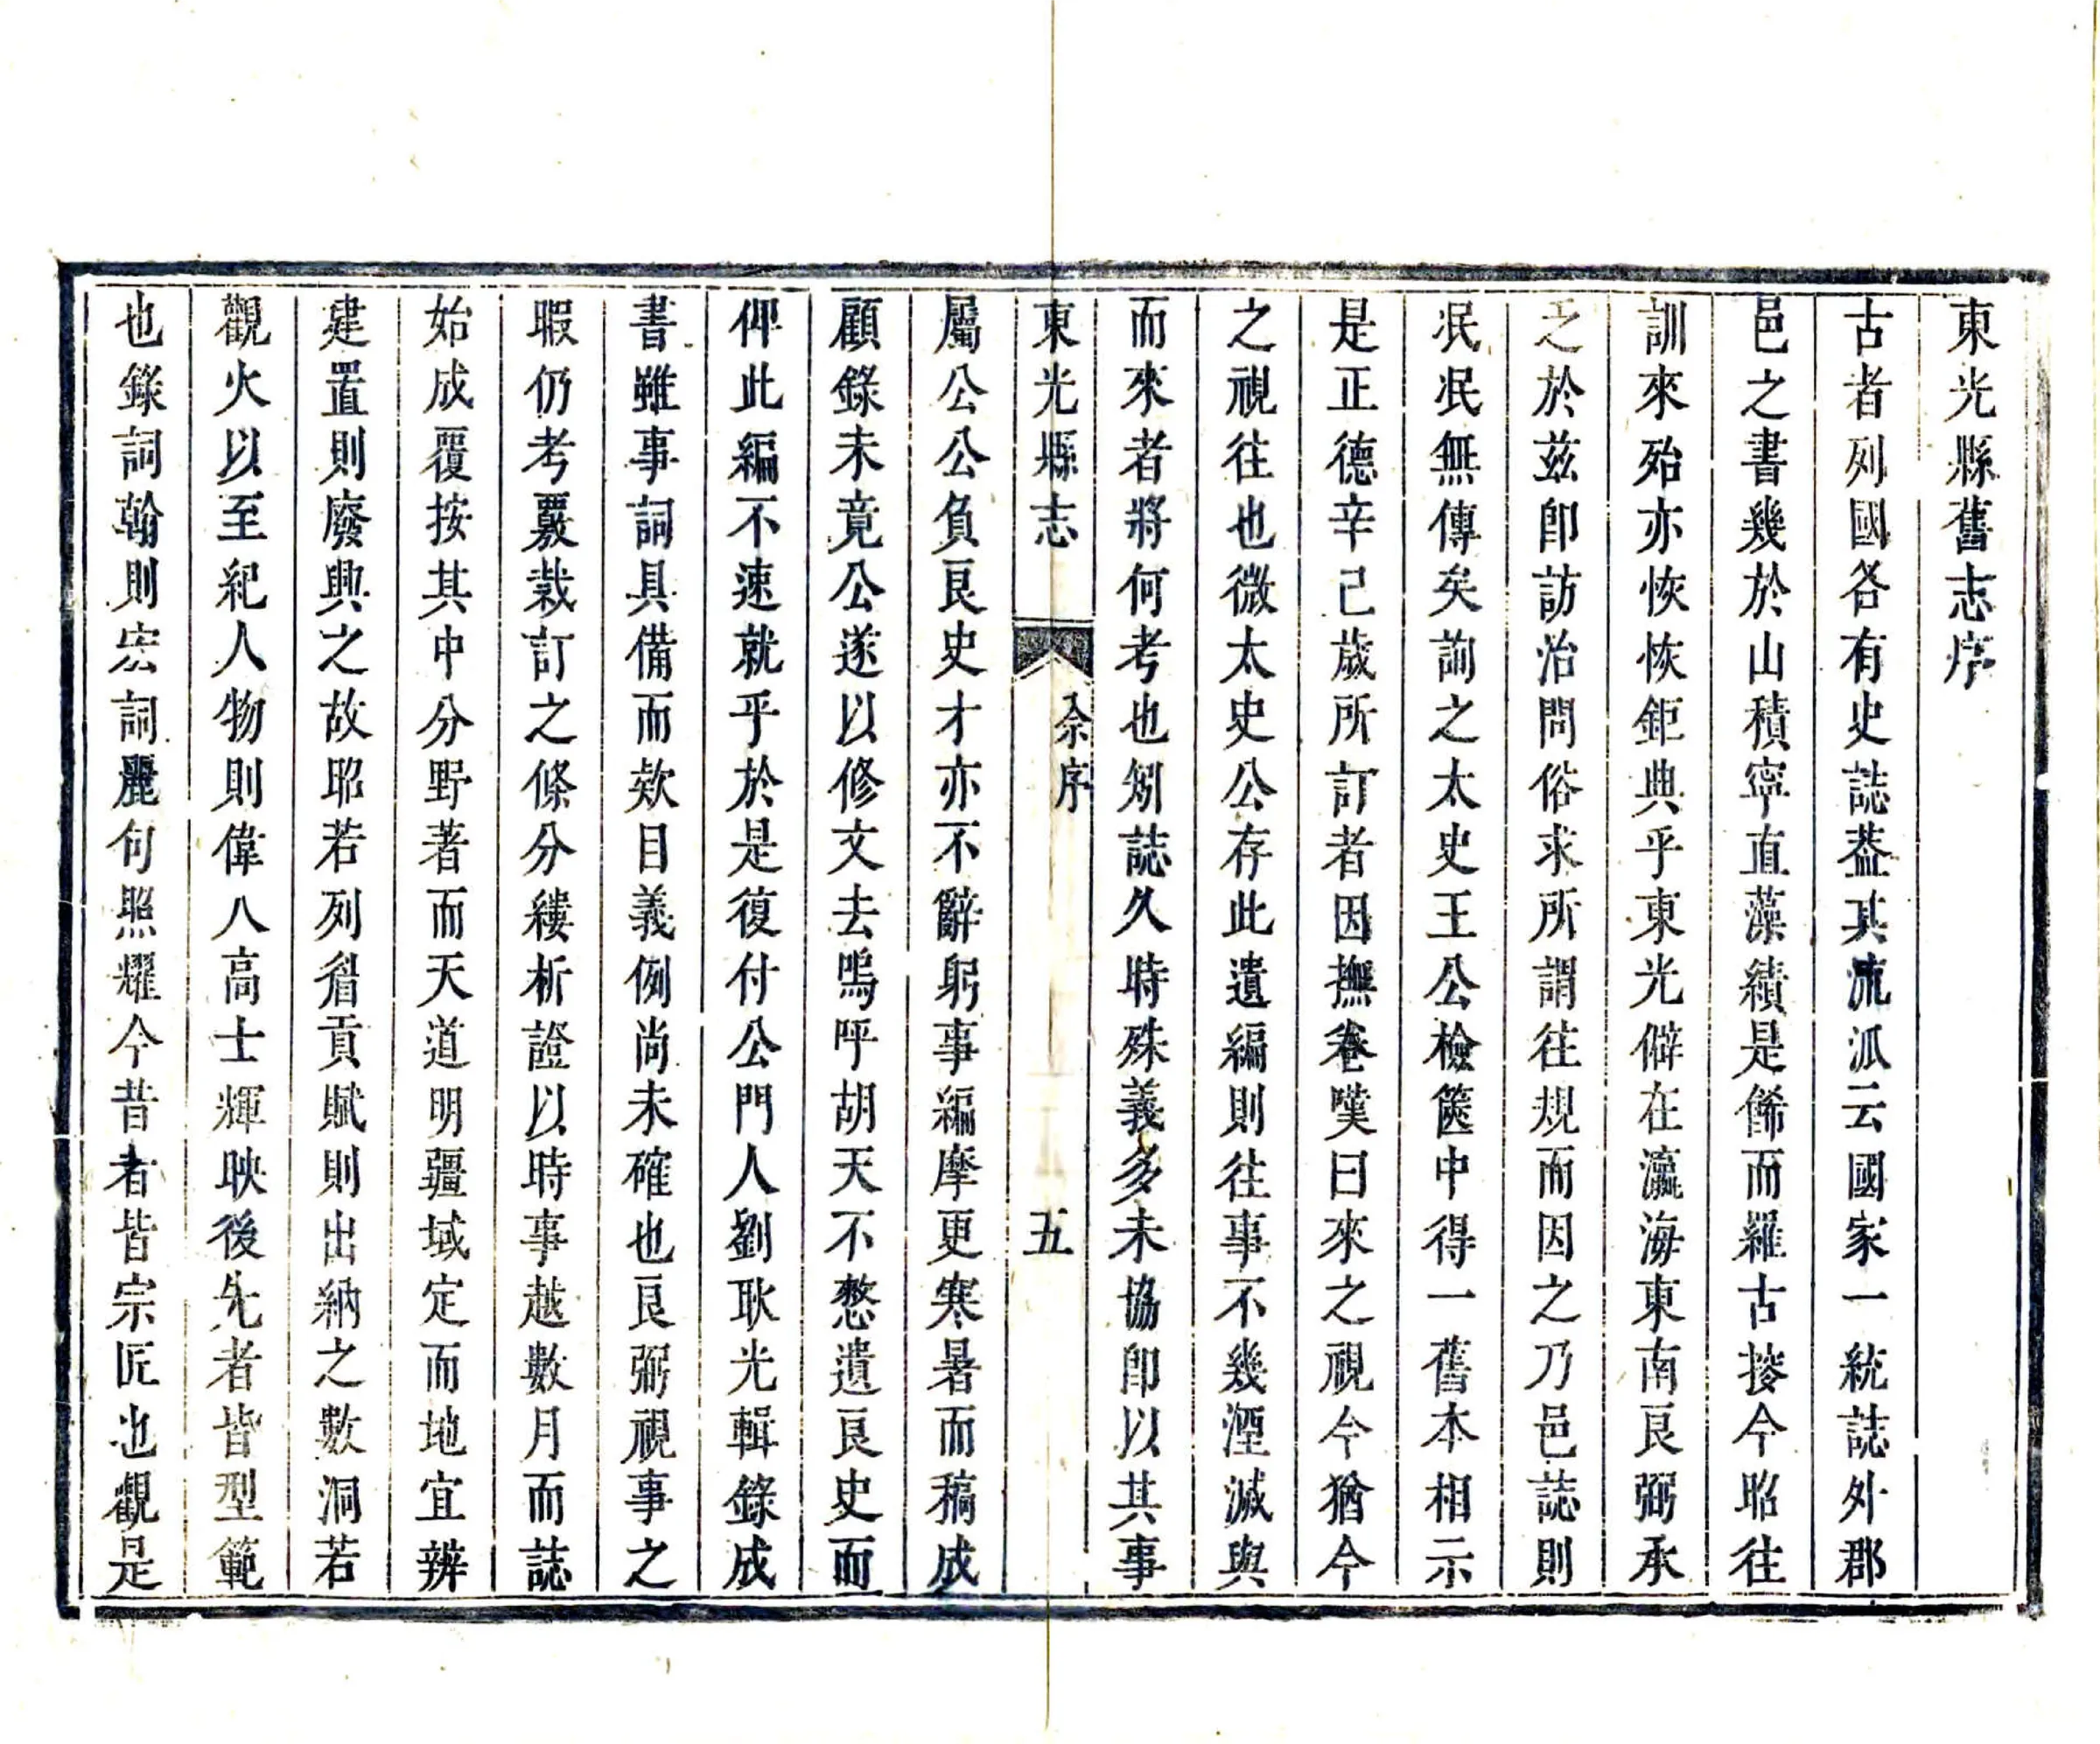 東光縣舊志序
古者列國各有史誌葢其流派云國家一統誌外郡
邑之書幾於山積寧直藻績是俻而羅古按今昭往
訓來殆亦恢恢鉅典乎東光僻在瀛海東南良弼承
之於兹卽訪治問俗求所謂往規而因之乃邑誌則
泯泯無傳矣詢之太史王公檢篋中得一舊本相示
是正德辛己歲所訂者因撫卷嘆曰來之視今猶今
之視往也微太史公存此遺編則往事不幾湮滅與
而來者將何考也矧誌久時殊義多未協卽以其事
東光縣志
余序
五
屬公公負良史才亦不辭躬事編摩更寒暑而稿成
顧錄未竟公遂以修文去嗚呼胡天不憖遺良史而
俾此編不速就乎於是復付公門人劉耿光輯錄成
書雖事詞具備而欵目義例尚未確也良弼視事之
暇仍考覈裁訂之條分縷析證以時事越數月而誌
始成覆按其中分野著而天道明疆域定而地宜辨
建置則廢興之故昭若列眉貢賦則出納之數洞若
觀火以至紀人物則偉人高士輝映後先者皆型範
也錄詞翰則宏詞麗句照耀今昔者皆宗匠也觀是